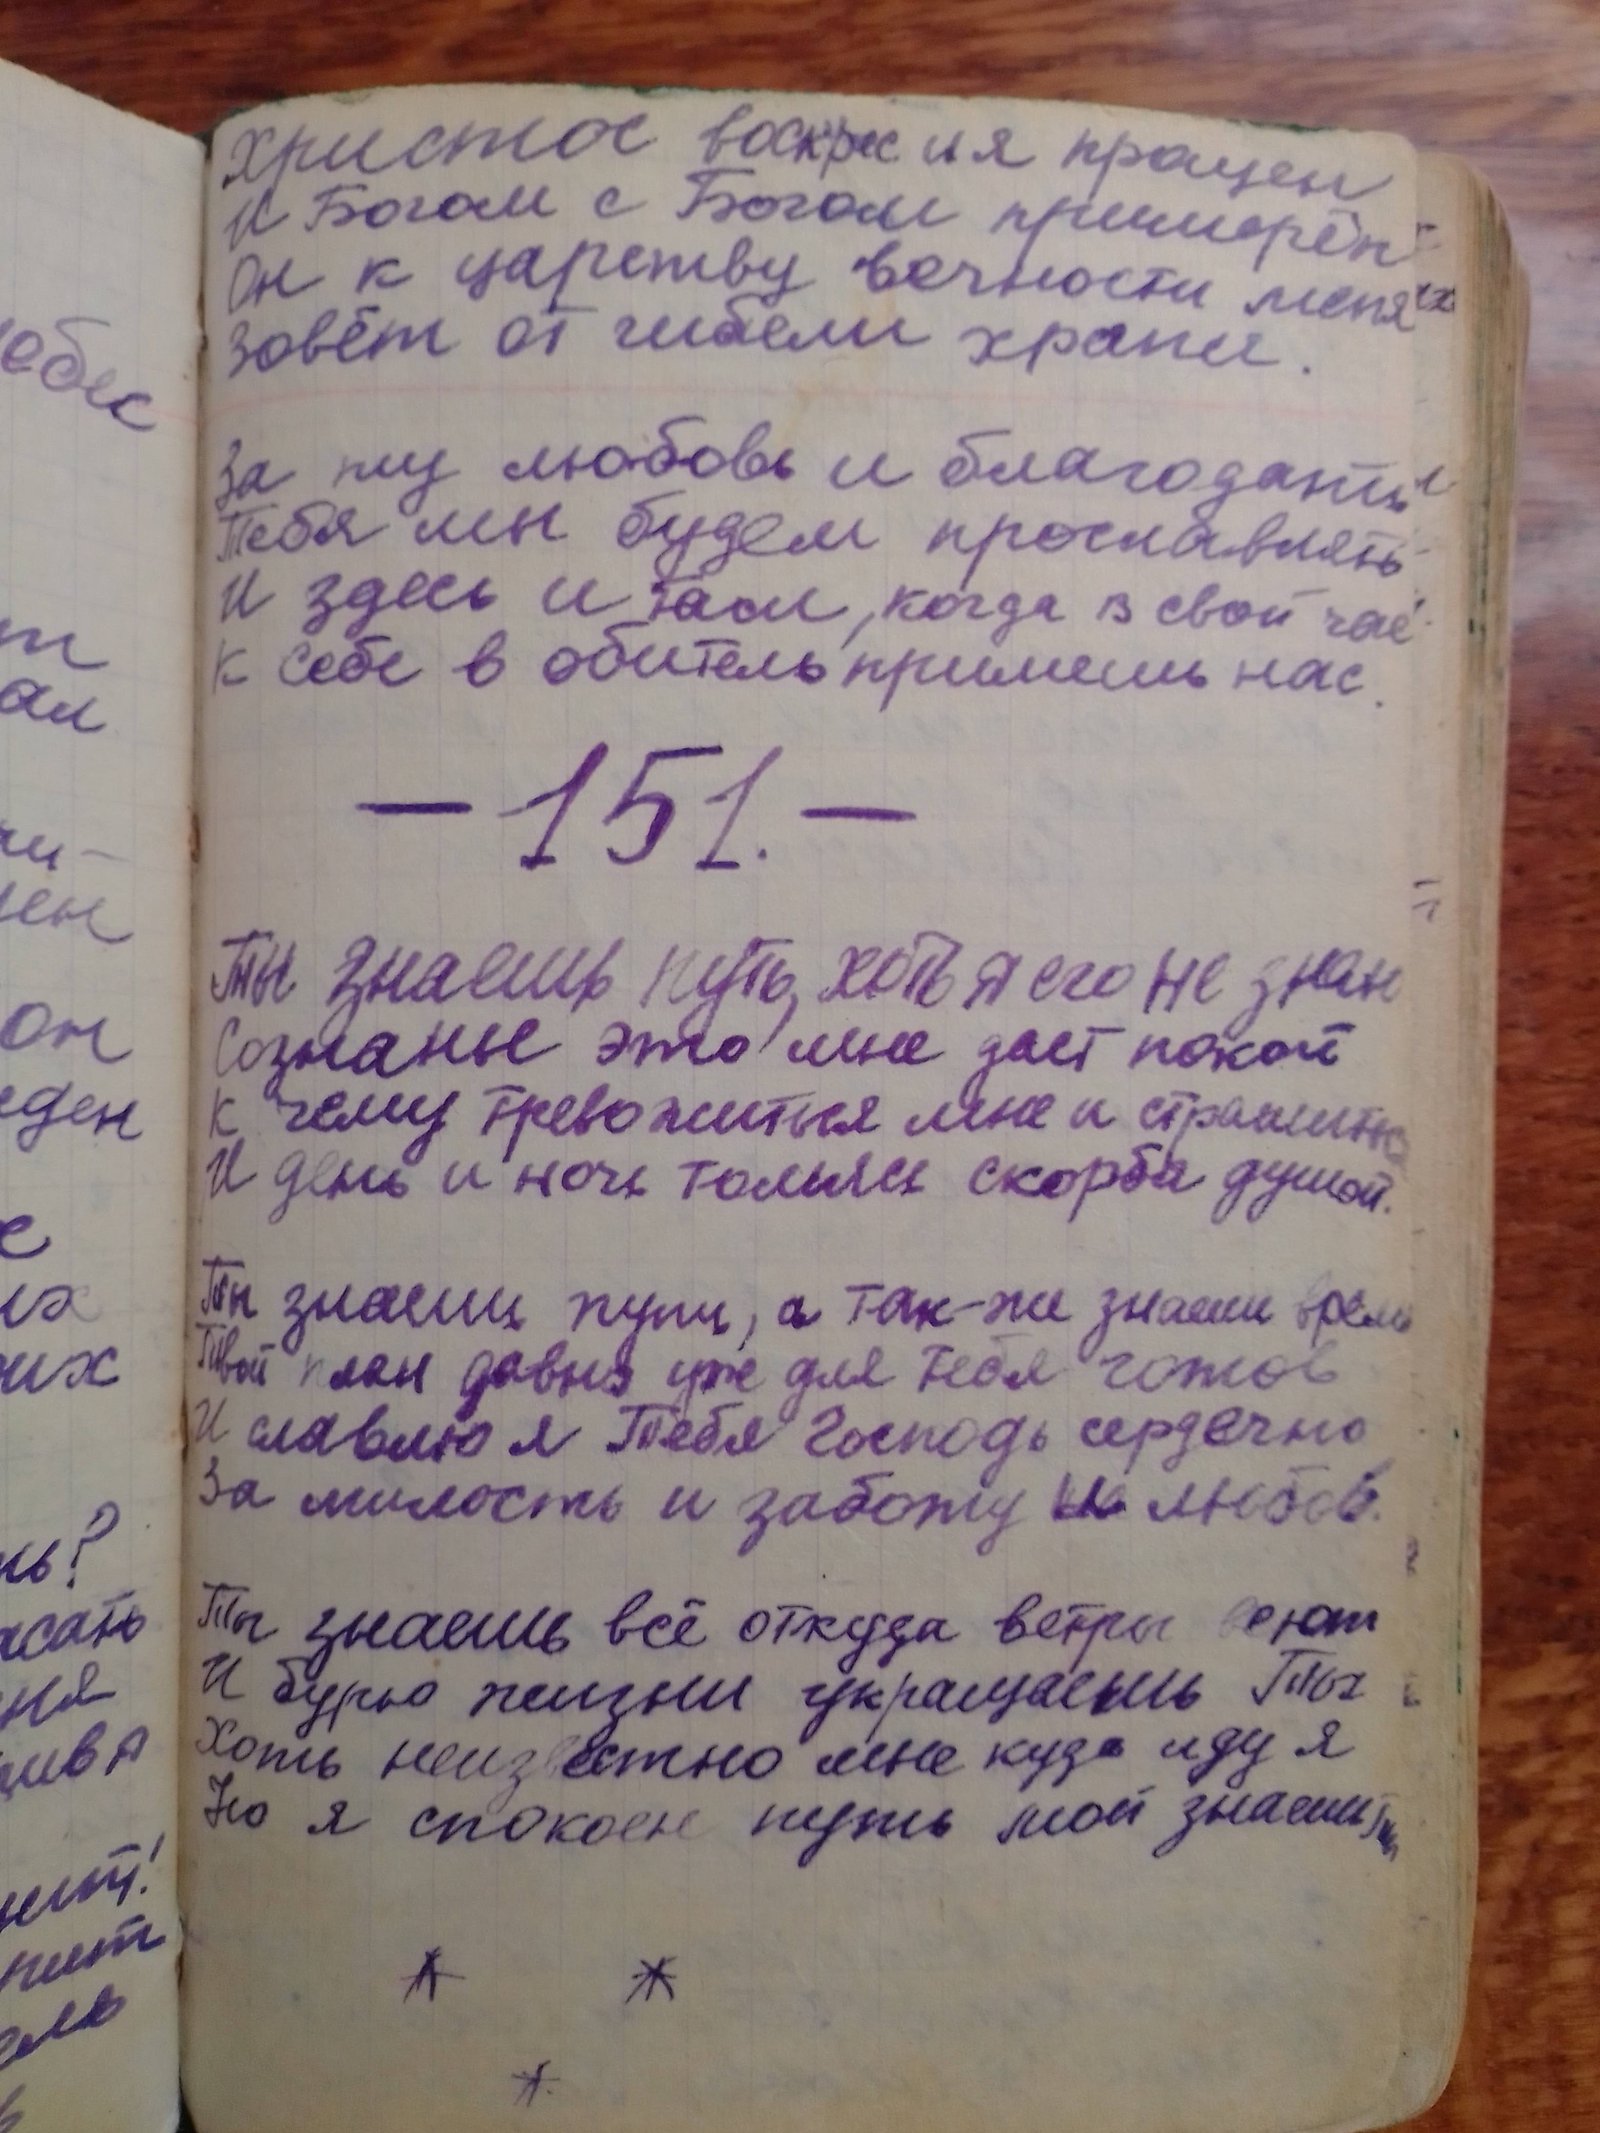 Христос воскрес и я пращен
И Богом с Богом примирён
Он к царству вечности меня
Зовёт от гибели храня.
За ту любовь и благодать
Тебя мы будем прославлять
И здесь и там, когда в свой час
К себе в обитель примешь нас.
— 151. —
Ты знаешь путь, хоть я его не знаю
Сознанье это мне даст покой
К чему тревожиться мне и страшиться
И день и ночь томясь скорбя душой.
Ты знаешь путь, а так-же знаешь время
Твой план давно уже для тебя готов
И славлю я Тебя Господь сердечно
За милость и заботу и любовь.
Ты знаешь всё откуда ветры веют
И бурю жизни укращаешь Ты
Хоть неизвестно мне куда иду я
Но я спокоен путь мой знаешь Ты
* *
*